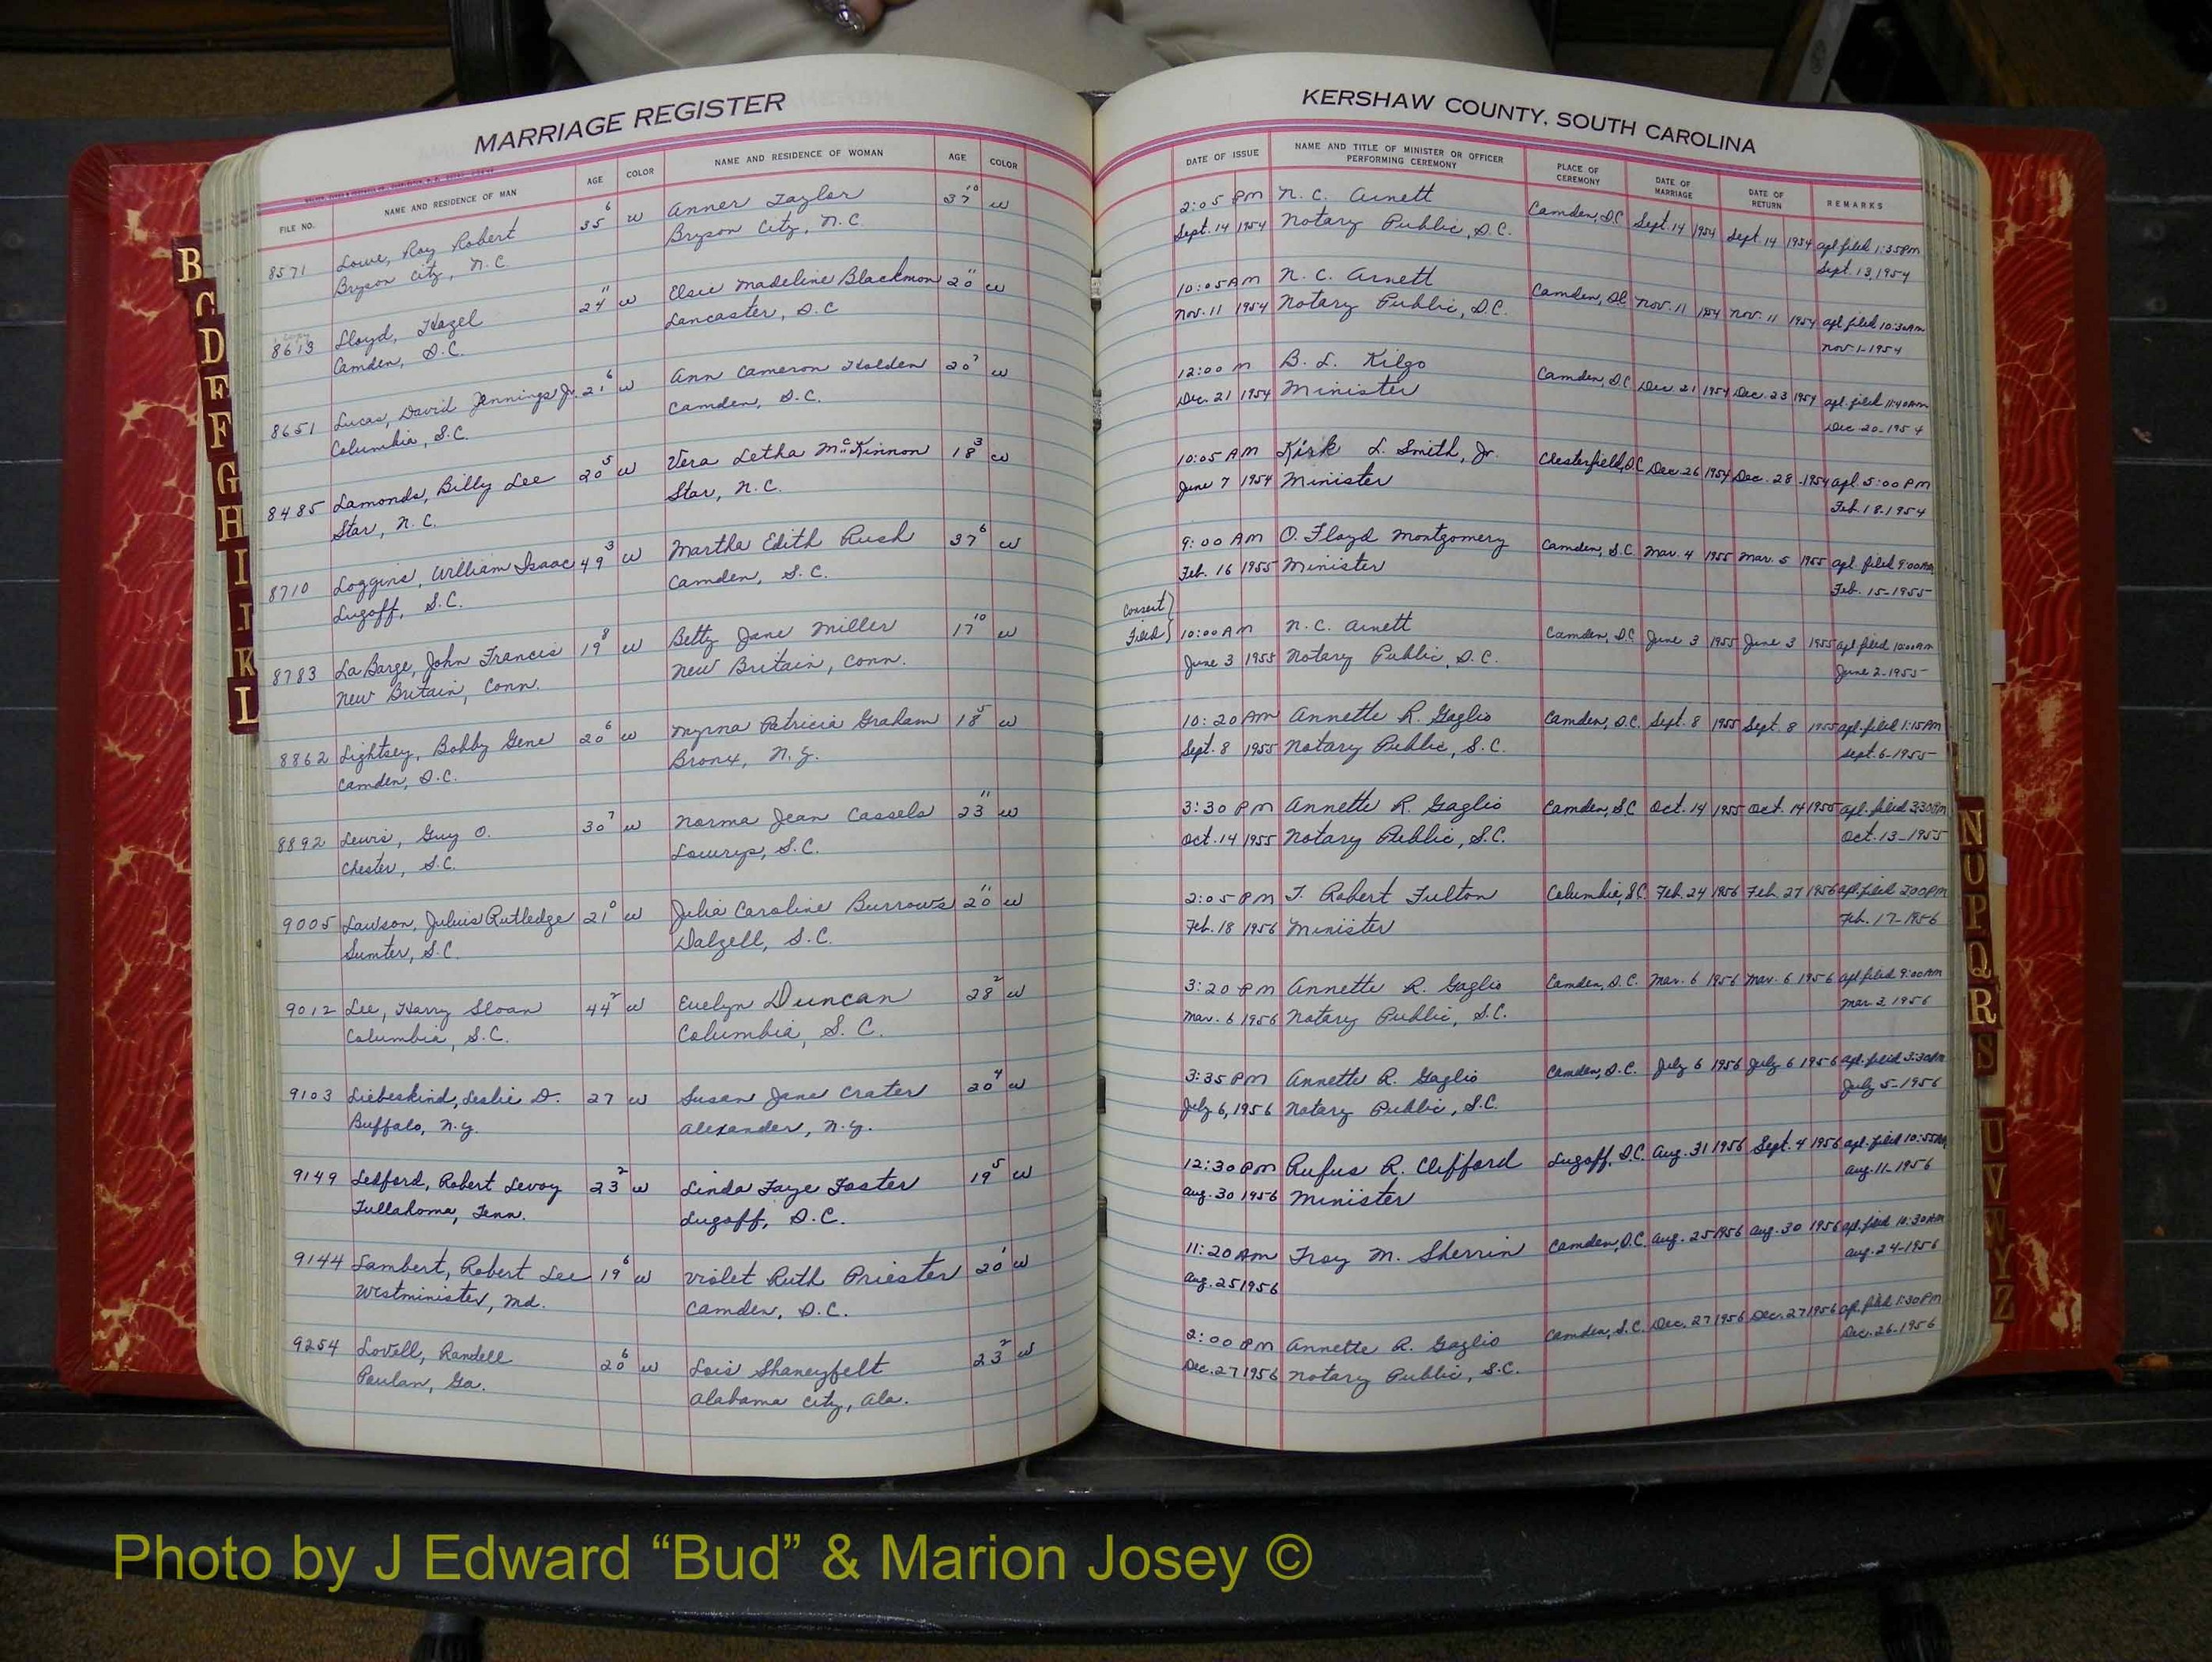 MARRIAGE REGISTER
FILE NO. NAME AND RESIDENCE OF MAN AGE COLOR NAME AND RESIDENCE OF WOMAN AGE COLOR
8571 Lowe, Roy Robert 35 6 w Anner Taylor 37 10 w
Bryson City, N.C. Bryson City, N.C.
8613 Lloyd, Hazel 24 11 w Elsie Madeline Blackmon 20 11 w
Camden, S.C. Lancaster, S.C
8651 Lucas, David Jennings Jr. 21 6 w Ann Cameron Holden 20 7 w
Columbia, S.C. Camden, S.C.
8485 Lamonds, Billy Lee 20 5 w Vera Letha McKinnon 18 3 w
Star, N.C. Star, N.C.
8710 Loggins, William Isaac 49 3 w Martha Edith Rush 37 6 w
Lugoff, S.C. Camden, S.C.
8783 LaBarge, John Francis 19 8 w Betty Jane Miller 17 10 w
New Britain, Conn. New Britain, Conn.
8862 Lightsey, Bobby Gene 20 6 w Myrna Patricia Graham 18 5 w
Camden, S.C. Bronx, N.Y.
8892 Lewis, Guy O. 30 7 w Norma Jean Cassels 23 11 w
Chester, S.C. Lowrys, S.C.
9005 Lawson, Julius Rutledge 21 0 w Julia Caroline Burrows 20 11 w
Sumter, S.C. Dalzell, S.C.
9012 Lee, Harry Sloan 44 2 w Evelyn Duncan 28 2 w
Columbia, S.C. Columbia, S.C.
9103 Liebeskind, Leslie D. 27 w Susan Jane Crater 20 4 w
Buffalo, N.Y. Alexander, N.Y.
9149 Ledford, Robert Levoy 23 2 w Linda Faye Foster 19 5 w
Tullahoma, Tenn. Lugoff, S.C.
9144 Lambert, Robert Lee 19 6 w Violet Ruth Priester 20 1 w
Westminister, Md. Camden, S.C.
9254 Lovell, Randell 20 6 w Lois Shaneyfelt 23 2 w
Poulan, Ga. Alabama City, Ala.
KERSHAW COUNTY, SOUTH CAROLINA
DATE OF ISSUE NAME AND TITLE OF MINISTER OR OFFICER PERFORMING CEREMONY PLACE OF CEREMONY DATE OF MARRIAGE DATE OF RETURN REMARKS
2:05 PM N. C. Arnett Camden, S.C Sept. 14 1954 Sept. 14 1954 apl filed 1:35 PM
Sept. 14 1954 Notary Public, S.C. Sept. 13, 1954
10:05 AM N. C. Arnett Camden, S.C Nov. 11 1954 Nov. 11 1954 apl filed 10:30 AM
Nov. 11 1954 Notary Public, S.C. Nov. 1-1954
12:00 M B. L. Kilgo Camden, S.C Dec. 21 1954 Dec. 23 1954 apl. filed 11:40 AM
Dec. 21 1954 Minister Dec 20-1954
10:05 AM Kirk L. Smith, Jr. Chesterfield, S.C Dec. 26 1954 Dec. 28 - 1954 apl. 5:00 PM
June 7 1954 Minister Feb. 18. 1954
9:00 AM O. Floyd Montgomery Camden, S.C. Mar. 4 1955 Mar. 5 1955 apl. filed 9:00 AM
Feb. 16 1955 Minister Feb. 15-1955
Consent
Filed 10:00 AM N. C. Arnett Camden, S.C June 3 1955 June 3 1955 apl filed 10:00 AM
June 3 1955 Notary Public, S.C. June 2-1955
10:20 AM Annette R. Gaglio Camden, S.C. Sept. 8 1955 Sept. 8 1955 apl. filed 1:15 PM
Sept. 8 1955 Notary Public, S.C. Sept. 6-1955
3:30 PM Annette R. Gaglio Camden, S.C Oct. 14 1955 Oct. 14 1955 apl. filed 3:30 PM
Oct. 14 1955 Notary Public, S.C. Oct. 13-1955
2:05 PM T. Robert Fulton Columbia, S.C. Feb. 24 1956 Feb. 27 1956 apl. filed 2:00 PM
Feb. 18 1956 Minister Feb. 17-1956
3:20 PM Annette R. Gaglio Camden, S.C. Mar. 6 1956 Mar. 6 1956 apl filed 9:00 AM
Mar. 6 1956 Notary Public, S.C. Mar. 2, 1956
3:35 PM Annette R. Gaglio Camden, S.C. July 6 1956 July 6 1956 apl. filed 3:30 PM
July 6, 1956 Notary Public, S.C. July 5-1956
12:30 PM Rufus R. Clifford Lugoff, S.C. Aug. 31 1956 Sept. 4 1956 apl. filed 10:55 AM
Aug. 30 1956 Minister Aug. 11-1956
11:20 AM Troy M. Sherrin Camden, S.C. Aug. 25 1956 Aug. 30 1956 apl. filed 10:30 AM
Aug. 25 1956 Aug. 24-1956
2:00 PM Annette R. Gaglio Camden, S.C. Dec. 27 1956 Dec. 27 1956 apl. filed 1:30 PM
Dec. 27 1956 Notary Public, S.C. Dec. 26. 1956
B
C
D
E
F
G
H
I
J
K
L
N
O
P
Q
R
S
U
V
W
Y
Z
Photo by J Edward “Bud” & Marion Josey ©